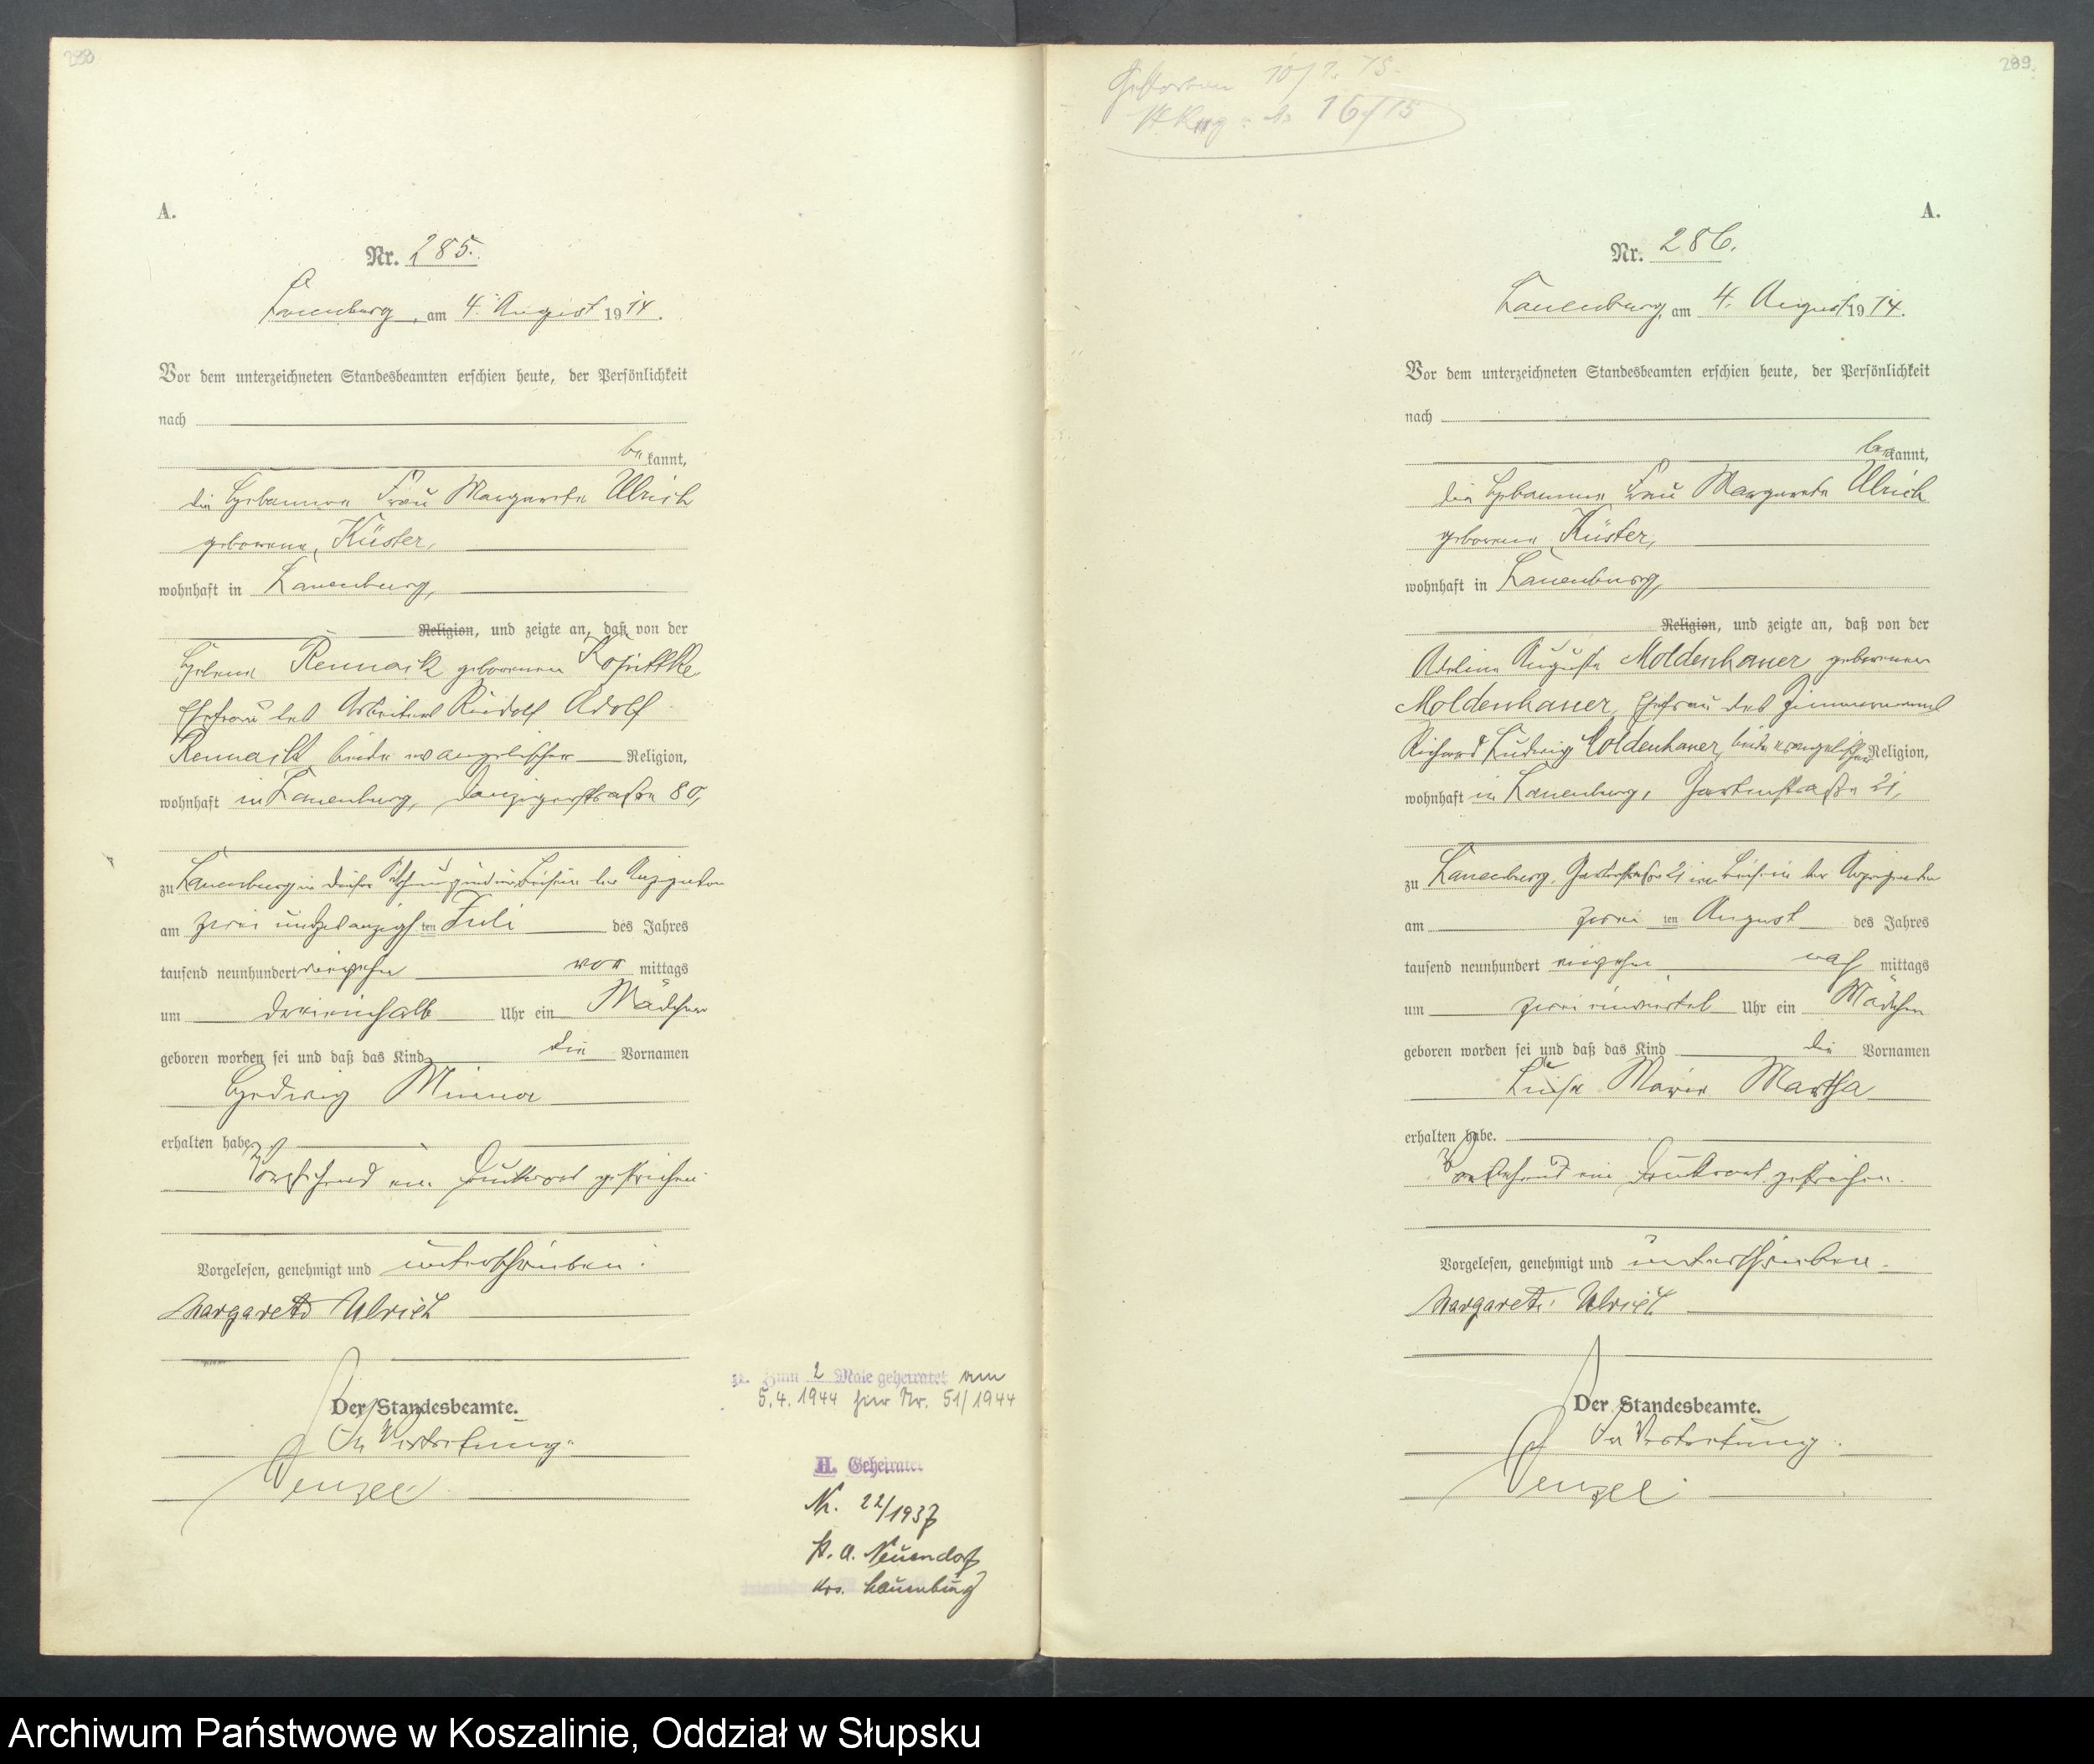 288
A.
Nr. 285.
Lauenburg, am 4. August 1914.
Vor dem unterzeichneten Standesbeamten erschien heute, der Persönlichkeit
nach
bekannt,
die Hebamme Frau Margarete Ulrich
geborene Küster,
wohnhaft in Lauenburg,
Religion, und zeigte an, daß von der
Helene geborenen
Ehefrau des Arbeiters Rudolf Adolf
beide evangelischer Religion,
wohnhaft in Lauenburg, Danzigerstraße 80,
zu Lauenburg in dieser Wohnung und im Beisein der Anzeigenden
am zwei und zwanzigsten Juli des Jahres
tausend neunhundert vierzehn vor mittags
um dreieinhalb Uhr ein Mädchen
geboren worden sei und daß das Kind die Vornamen
Hedwig Minna
erhalten habe.
Vorstehend ein Druckwort gestrichen.
Vorgelesen, genehmigt und unterschrieben.
Margarete Ulrich
Der Standesbeamte.
In Vertretung.
Wenzel
H. Zum 2 Male geheiratet am
5.4.1944 hier Nr. 51/1944
H. Geheiratet
Nr. 22/1937
St. A. Neuendorf
Krs. Lauenburg
289.
Gestorben 10/7. 15.
16/15
A.
Nr. 286.
Lauenburg, am 4. August 1914.
Vor dem unterzeichneten Standesbeamten erschien heute, der Persönlichkeit
nach
bekannt,
die Hebamme Frau Margarete Ulrich
geborene Küster,
wohnhaft in Lauenburg,
Religion, und zeigte an, daß von der
Auguste Moldenhauer geborenen
Moldenhauer, Ehefrau des Zimmermanns
Richard Ludwig Moldenhauer, beide evangelischer Religion,
wohnhaft in Lauenburg, Gartenstraße 21,
zu Lauenburg, Gartenstraße 21 im Beisein der Anzeigenden
am zweiten August des Jahres
tausend neunhundert vierzehn nach mittags
um zweieinviertel Uhr ein Mädchen
geboren worden sei und daß das Kind die Vornamen
Marie Martha
erhalten habe.
Vorstehend ein Druckwort gestrichen.
Vorgelesen, genehmigt und unterschrieben.
Margarete Ulrich
Der Standesbeamte.
In Vertretung.
Wenzel.
Archiwum Państwowe w Koszalinie, Oddział w Słupsku